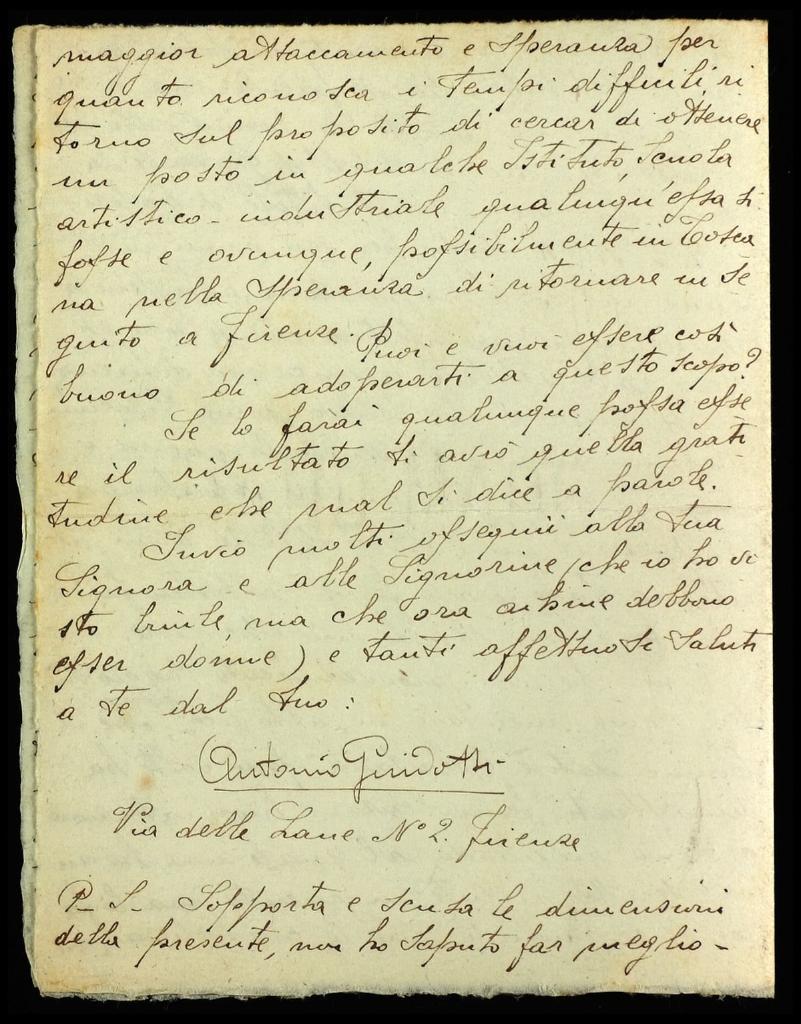 maggior attaccamento e speranza per
quanto riconosca i tempi difficili, ri
torno sul proposito di cercar di ottenere
un posto in qualche Istituto, Scuola
artistico-industriale qualunqu'essa si
fosse e ovunque, possibilmente in Tosca
na nella speranza di ritornare in se
guito a Firenze. Puoi e vuoi essere così
buono di adoperarti a questo scopo?
Se lo farai qualunque possa esse
re il risultato ti avrò quella grati
tudine che mal si dice a parole.
Invio molti ossequii alla tua
Signora e alle Signorine (che io ho vi
sto bimbe, ma che ora ahime debbono
esser donne) e tanti affettuosi saluti
a te dal tuo:
Antonio Guidotti
Via delle Lane Nº 2. Firenze
P- S- Sopporta e scusa le dimensioni
della presente, non ho saputo far meglio-